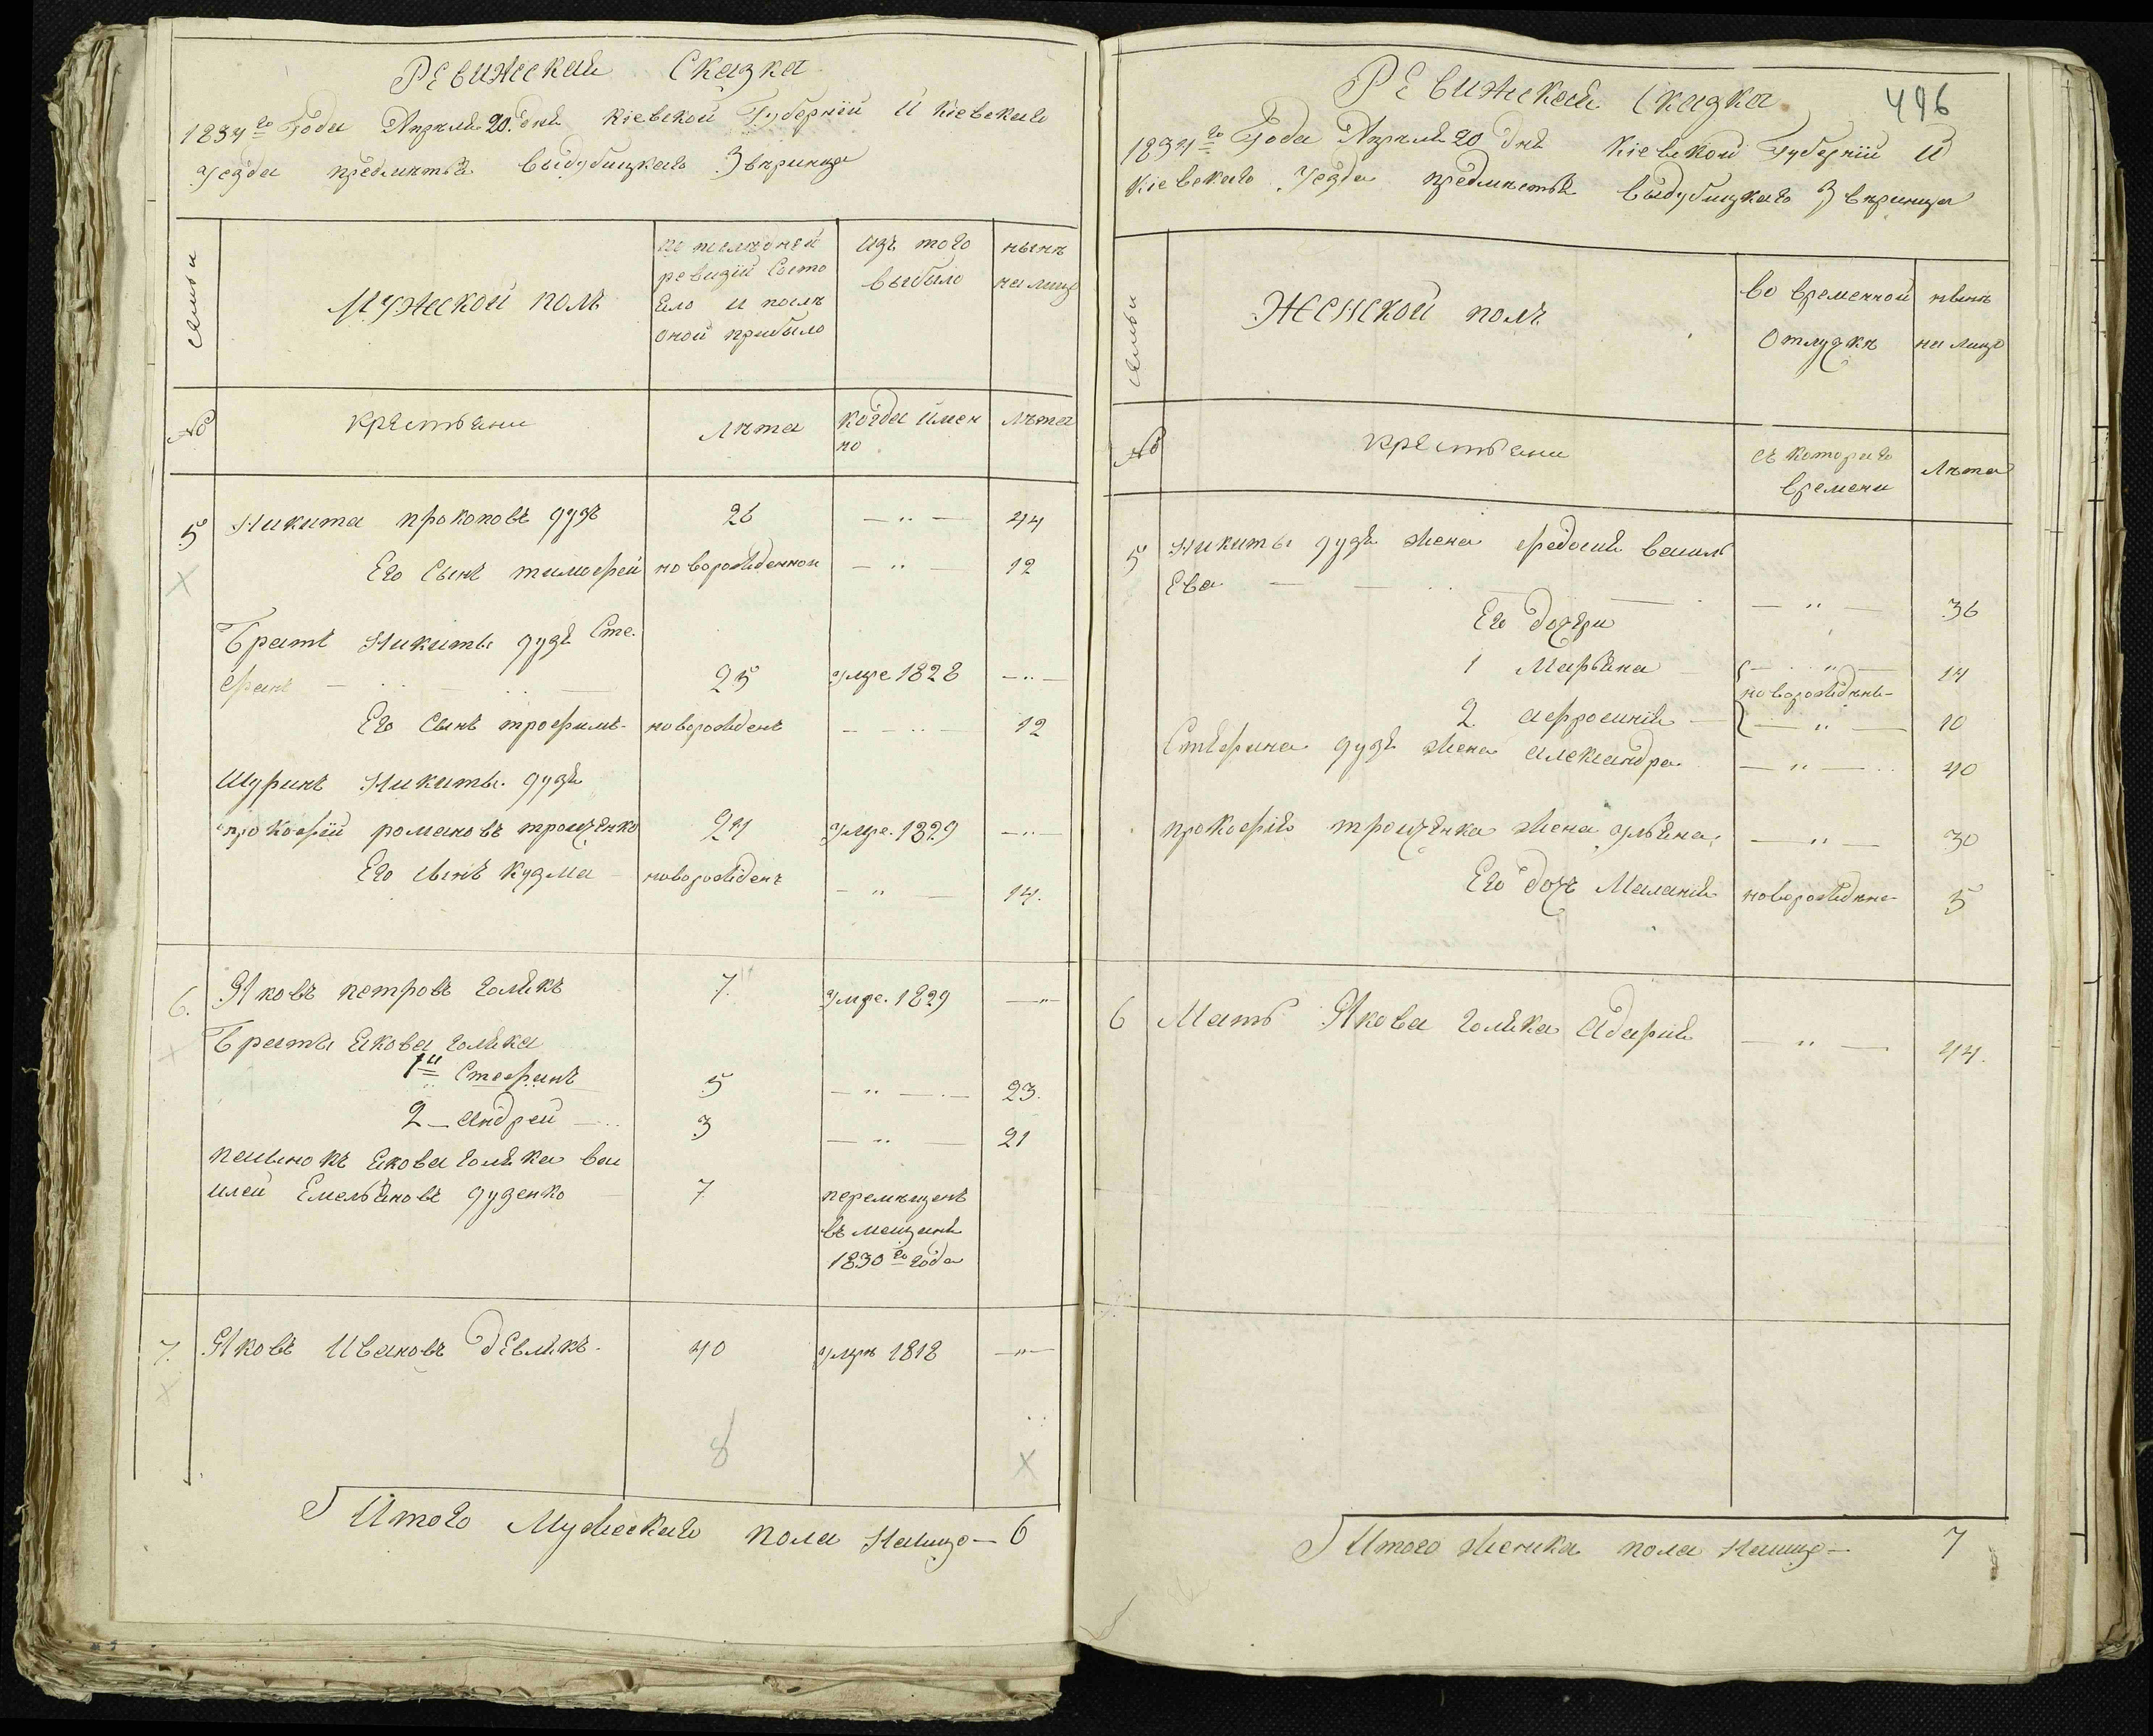 Ревижская Сказка
1834го Года Апреля 20. дня Кіевской Губерніи И Кіевскаго
уезда предместья Выдубицкаго Звѣринца
семьи
Мужеской полъ
по последней
ревизіи Состо
Ело и после
оной прибыло
изъ того
выбыло
ныне
на лицо
№
крестьяни
Лета
когда Имен
но
Лета
5
Никита прокоповъ дудя
26
44
Его Сынъ тимофей
новорожденной
12
Братъ Никиты дудя Сте.
фанъ
25
умре 1828
Его Сынъ трофимъ
новорожденъ
12
Шуринъ Никиты дудя
прокофій романовъ трощенко
24
умре. 1829
Его сынъ кузма
новорожденъ
14.
6.
Яковъ петровъ голякъ
7.
умре. 1829
Браты Якова голяка
1й Стефанъ
5
23.
2 андрей
3
21
пасынокъ Якова голяка Вас
илей Емельяновъ дуденко
7
перемещенъ
въ мещани
1830го года
7.
Яковъ Ивановъ девлякъ.
40
умре 1818
8
Итого Мужескаго пола Налицо 6
496
Ревижская Сказка
1834го Года Апреля 20 дня Кіевской Губерніи И
Кіевскаго уезда предместья Выдубицкаго Звѣринца
семьи
Женской полъ
во временной
Отлучке
ныне
на лицо
№
крестьяни
съ котораго
времени
Лета
5
Никиты дудя жена федосия василь
Ева
36
Его дочери
1 Марьяна
14
новорожденн
2 афросиния
10
Стефана дудя жена александра
40
прокофія трощенка жена ульяна.
30
Его дочъ Маланія
новорожденна
5
6
Мать Якова голяка Адарія
44.
Итого женска пола Налицо
7